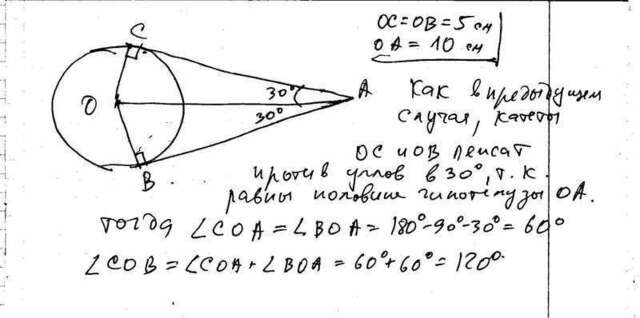 C
OC=OB=5 см
OA=10 см
O
30°
30°
A
B
Как в предыдущем
случая, катеты
OC и OB лежат
против углов в 30°, т.к.
равны половине гипотенузы OA.
тогда ∠COA=∠BOA=180°-90°-30°=60°
∠COB=∠COA+∠BOA=60°+60°=120°.